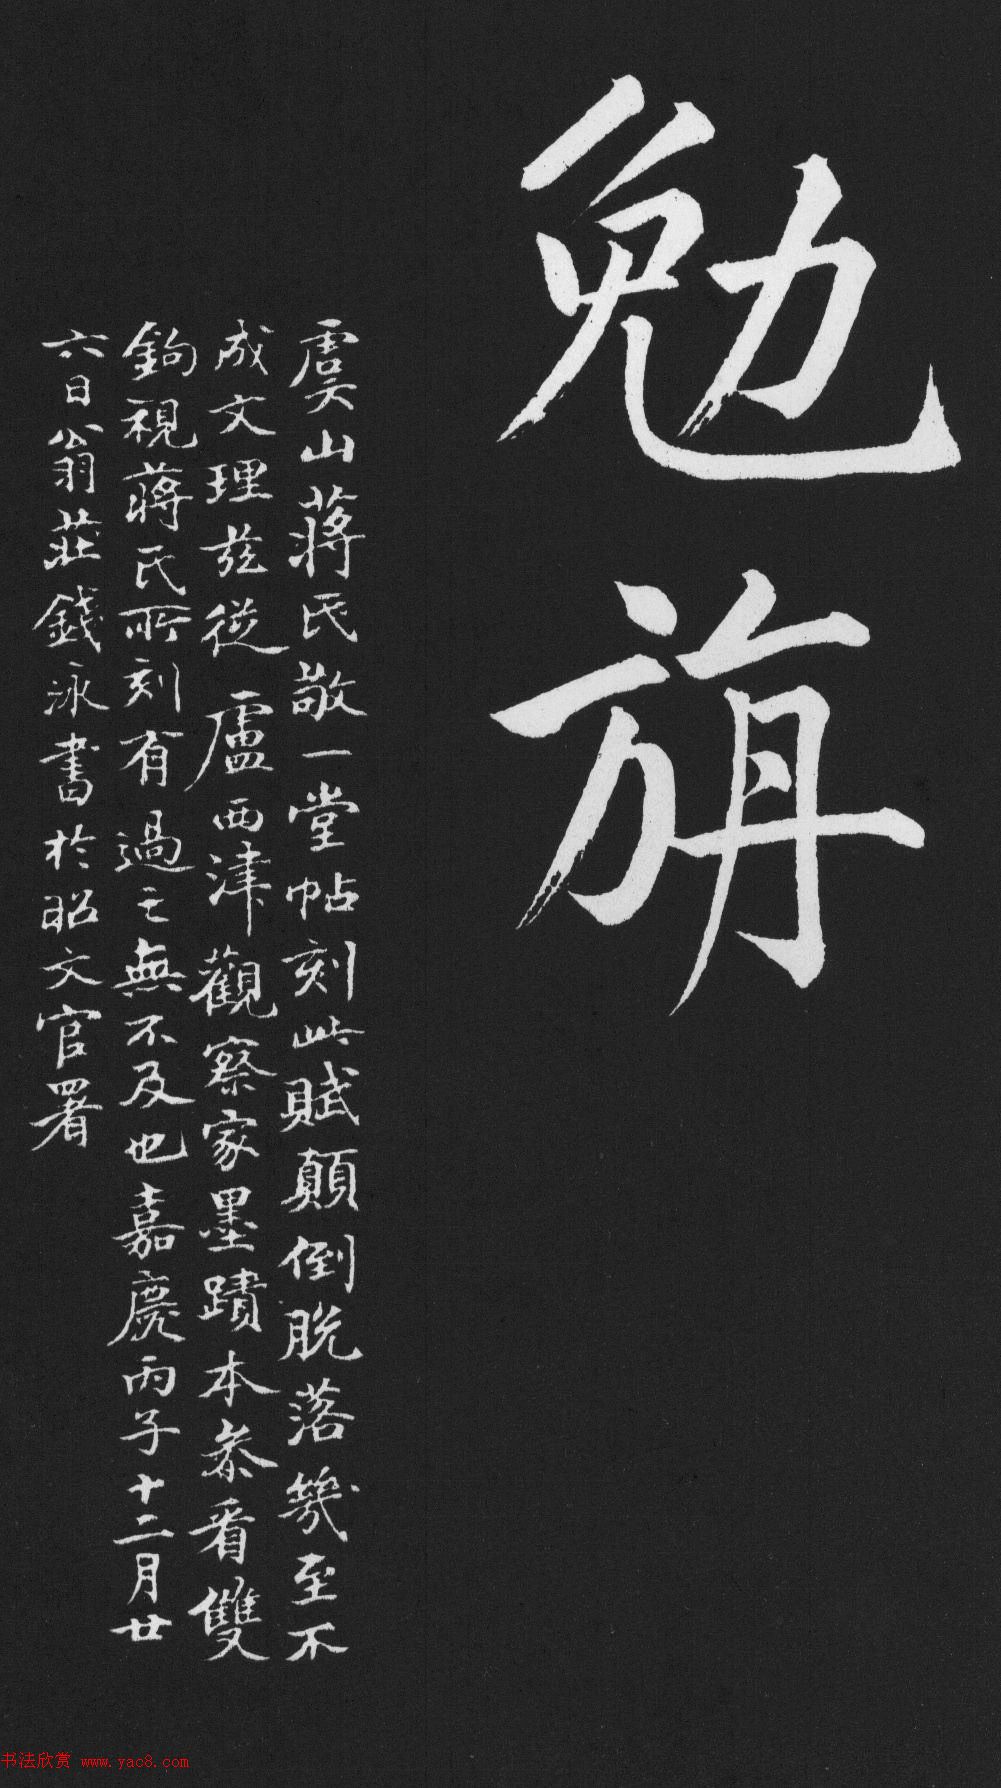 勉旃
虞山蒋氏敬一堂帖刻此賦顛倒脱落幾至不
成文理茲從盧西津觀察家墨蹟本叅看雙
鉤視蒋氏所刻有過之無不及也嘉慶丙子十二月廿
六日翁莊錢泳書於昭文官署
书法欣赏 www.yac8.com